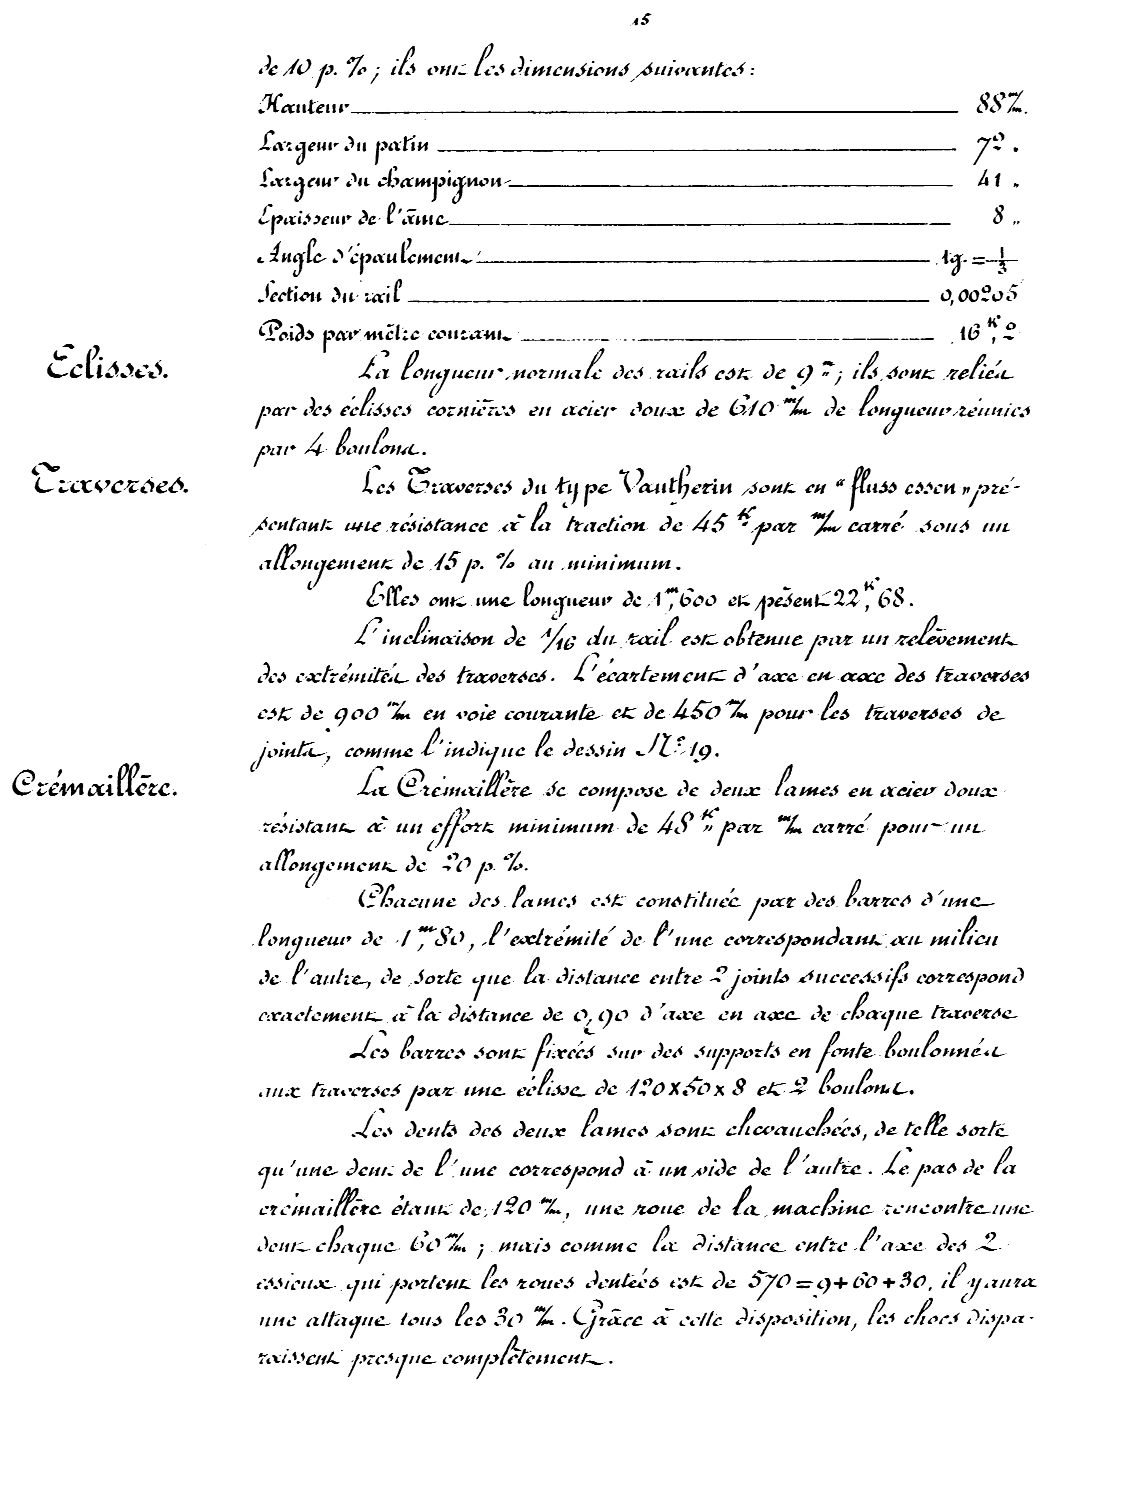 15
de 10 p. %; ils ont les dimensions suivantes:
Hauteur 88 m/m.
Largeur du patin 72 "
Largeur du champignon 41 "
Epaisseur de l'âme 8 "
Angle d'épaulement tg. = 1/3
Section du rail 0,00205
Poids par mètre courant 16 K,2
Eclisses.
La longueur normale des rails est de 9 m; ils sont reliés
par des éclisses cornières en acier doux de 610 m/m de longueur réunies
par 4 boulons.
Traverses.
Les Traverses du type Vautherin sont en "fluss essen" pré-
sentant une résistance à la traction de 45 K par m/m carré sous un
allongement de 15 p. % au minimum.
Elles ont une longueur de 1 m,600 et pèsent 22 K,68.
L'inclinaison de 1/16 du rail est obtenue par un relèvement
des extrémités des traverses. L'écartement d'axe en axe des traverses
est de 900 m/m en voie courante et de 450 m/m pour les traverses de
joints, comme l'indique le dessin No. 19.
Crémaillère.
La Crémaillère se compose de deux lames en acier doux
résistant à un effort minimum de 48 K par m/m carré pour un
allongement de 20 p. %.
Chacune des lames est constituée par des barres d'une
longueur de 1 m,80, l'extrémité de l'une correspondant au milieu
de l'autre, de sorte que la distance entre 2 joints successifs correspond
exactement à la distance de 0,90 d'axe en axe de chaque traverse
Les barres sont fixées sur des supports en fonte boulonnés
aux traverses par une éclisse de 120x50x8 et 2 boulons.
Les dents des deux lames sont chevauchées, de telle sorte
qu'une dent de l'une correspond à un vide de l'autre. Le pas de la
crémaillère étant de 120 m/m, une roue de la machine rencontre une
dent chaque 60 m/m; mais comme la distance entre l'axe des 2
essieux qui portent les roues dentées est de 570=9+60+30, il y aura
une attaque tous les 30 m/m. Grâce à cette disposition, les chocs dispa-
raissent presque complètement.